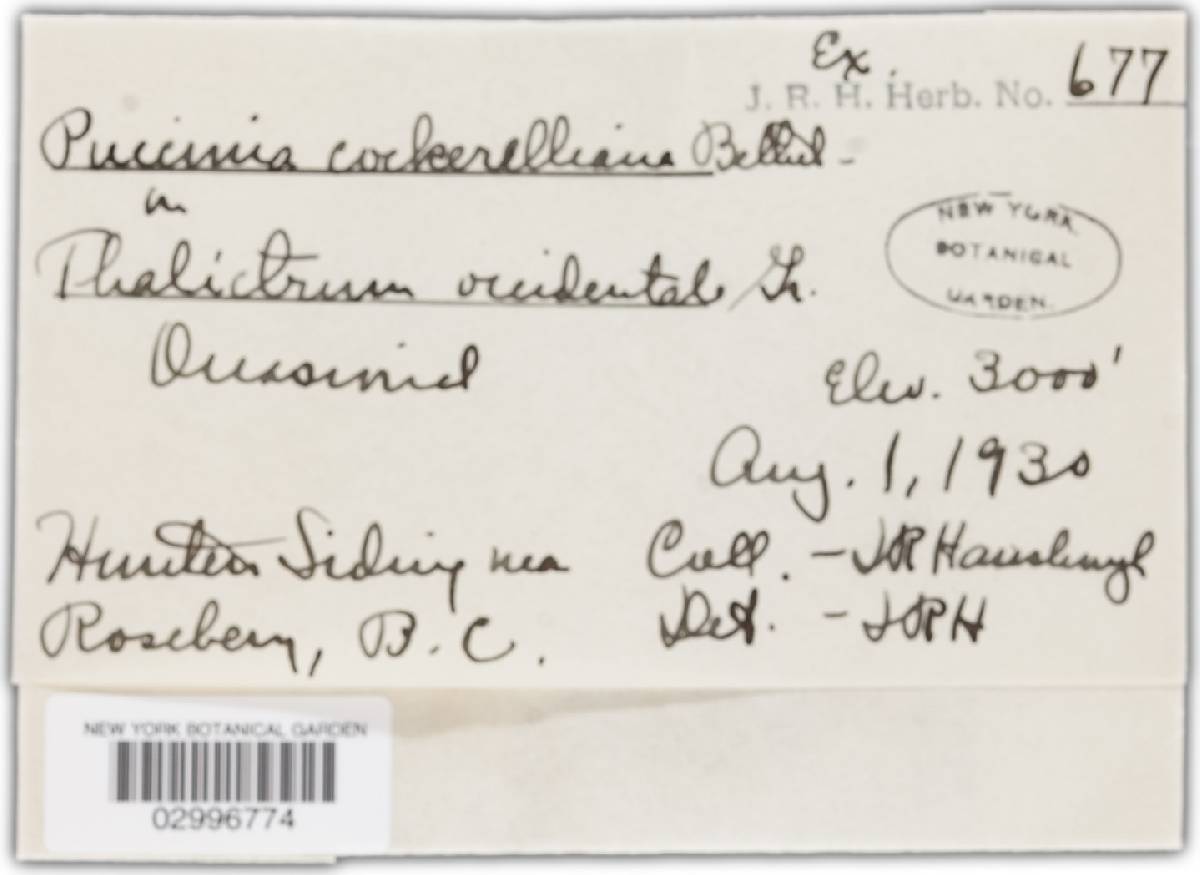 Ex. J. R. H. Herb. No. 677
Puccinia cockerelliana Bethel -
on
Thalictrum occidentale Gr.
NEW YORK
BOTANICAL
GARDEN.
Elev. 3000'
Aug. 1, 1930
Hunters Siding near
Rosebery, B. C.
Coll. - JR Hansbrough
Det. - JRH
NEW YORK BOTANICAL GARDEN
02996774